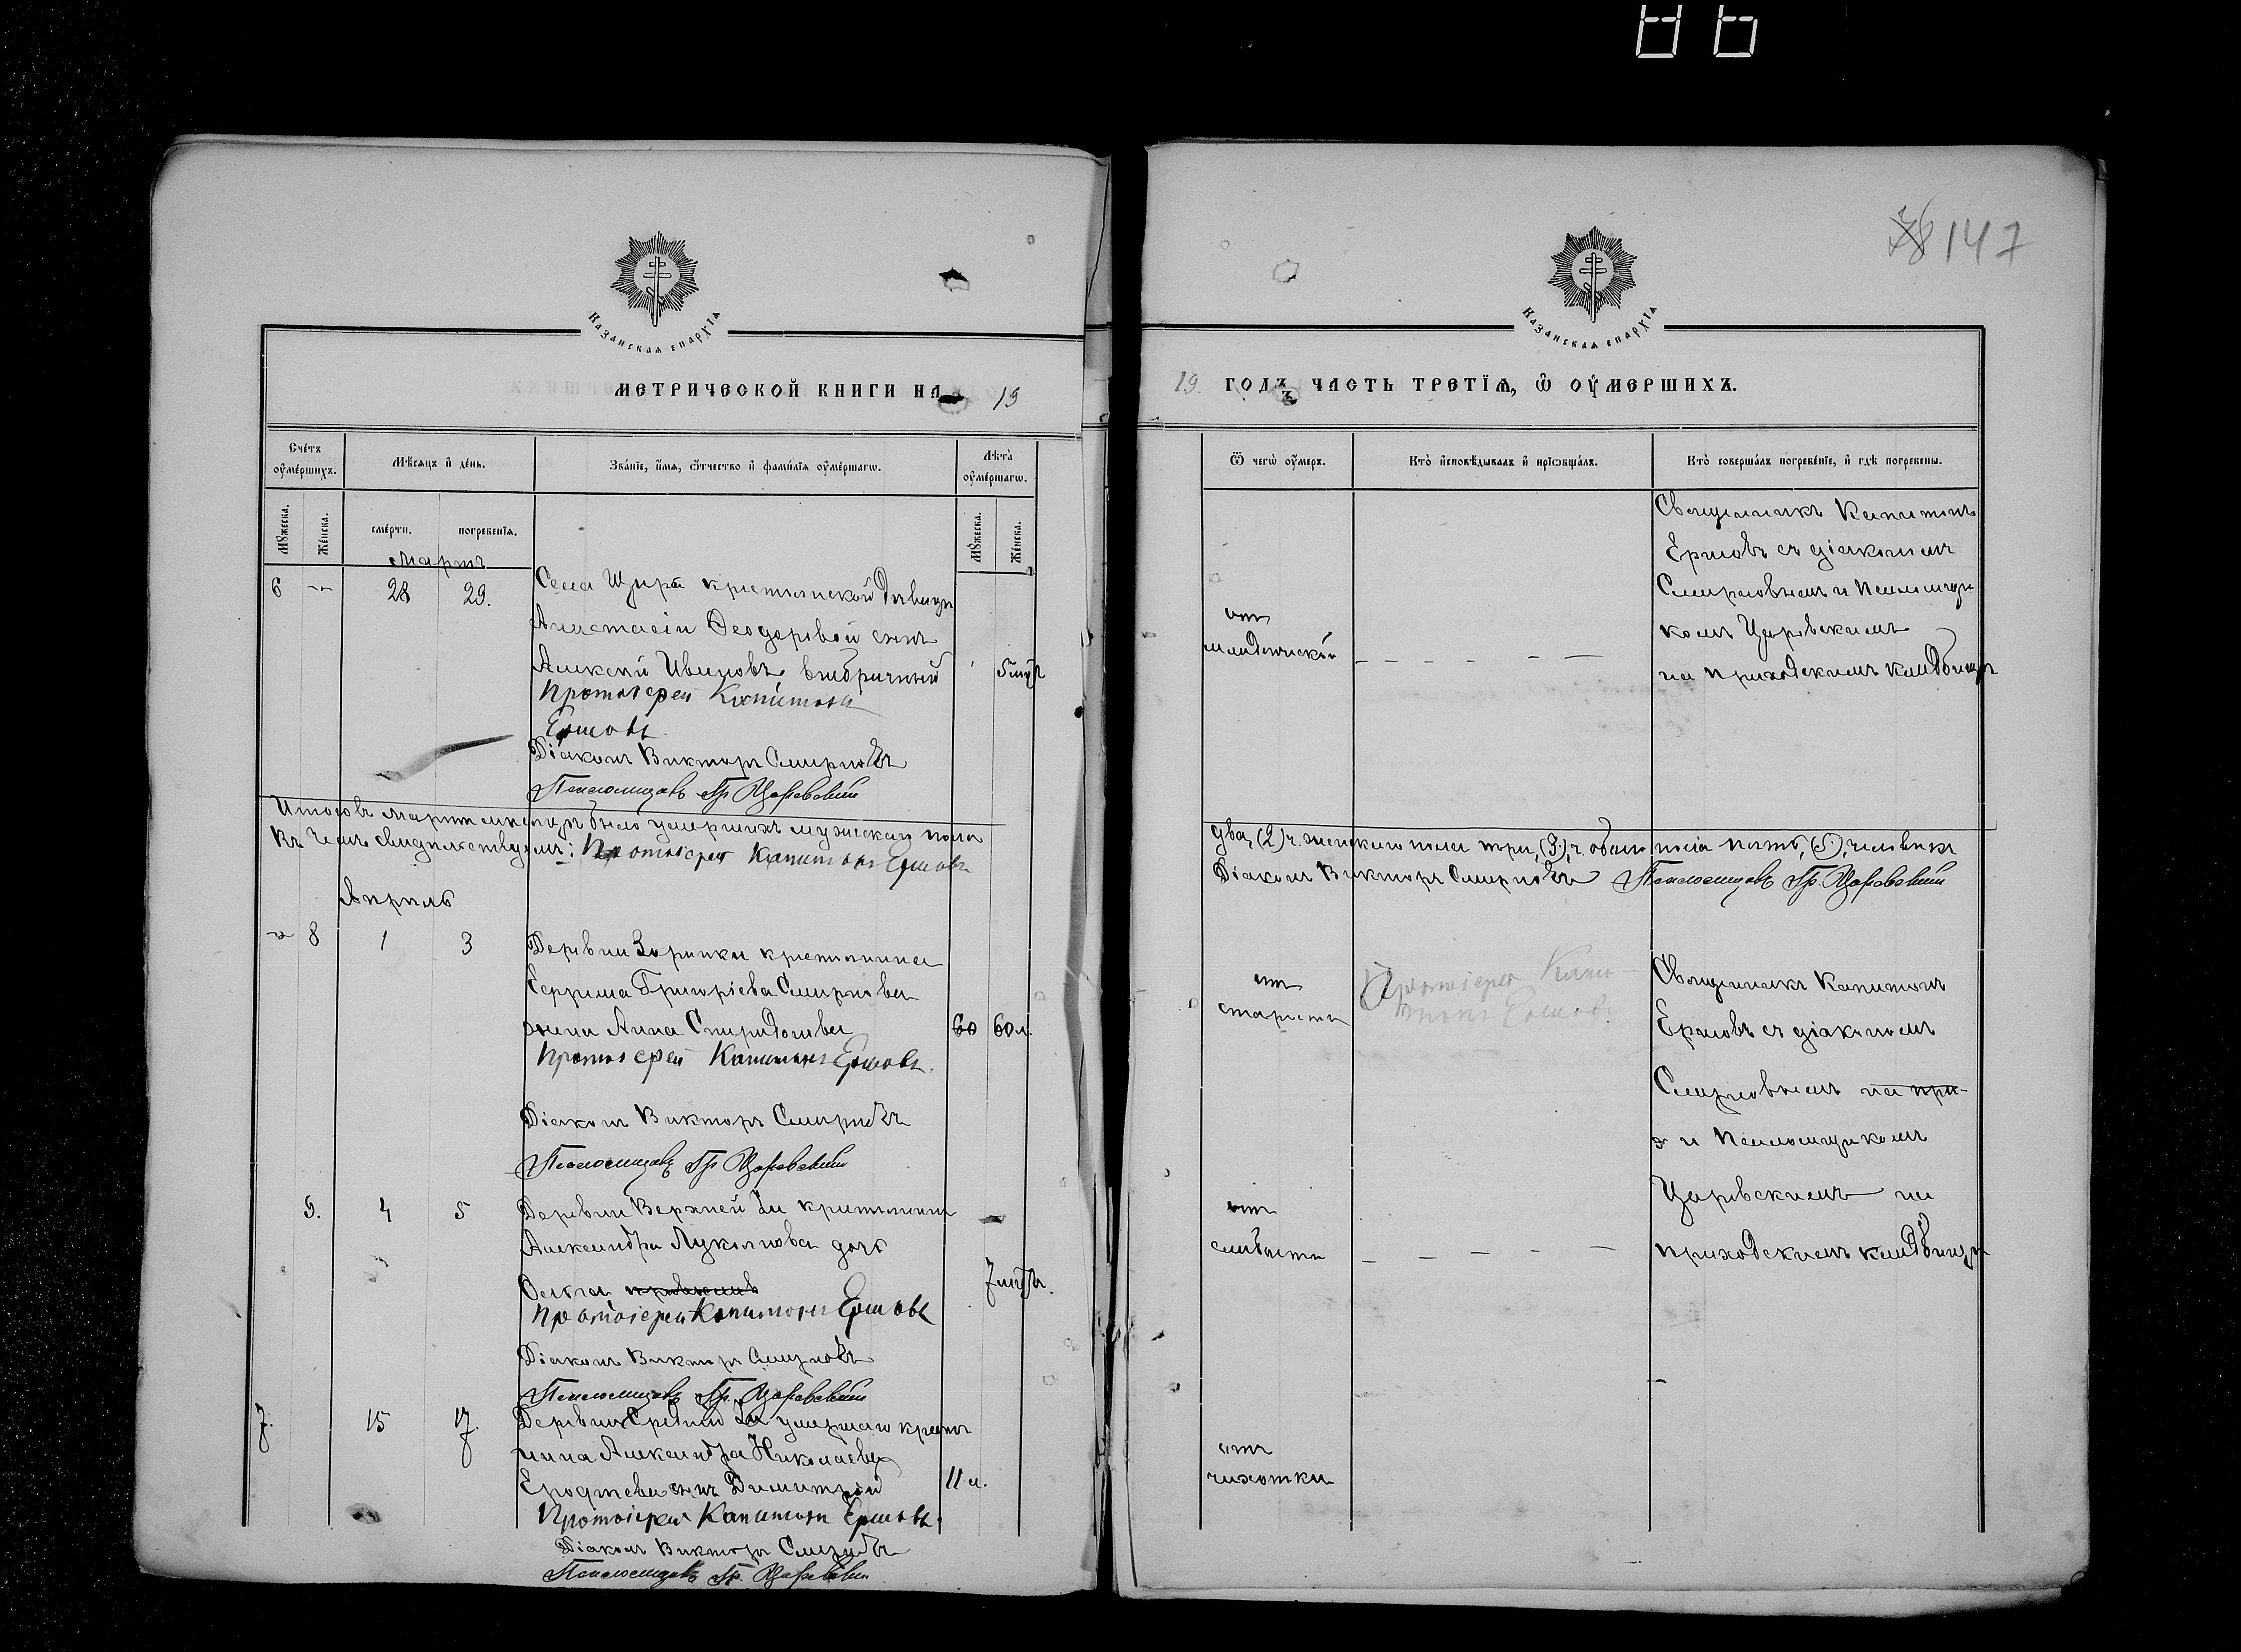 147
Казанская епархїѧ
Казанская епархїѧ
МЕТРИЧЕСКОЙ КНИГИ НА 19
19. ГОДЪ ЧАСТЬ ТРЕТЇѦ, Ѿ ОУМЕРШИХЪ.
Сче́тъ оумершихъ.
Мѣсяцъ и день.
Званїе, имя, ѿтчество и фамилїя оумершагω.
Лѣта оумершагω.
Ѿ чегω оумеръ.
Кто исповѣдывалъ и прїωбщалъ.
Кто совершалъ погребенїе, и гдѣ погребены.
Мужеска.
Женска.
смерти.
погребенїя.
Мужеска.
Женска.
Мартъ
6 28 29.
Села крестьянской дѣвицы
Анастасіи Ѳеодоровой сынъ
Алексѣй Ивановъ внѣбрачный
Протоіерей Капитонъ
Ершовъ.
Діаконъ Викторъ Смирновъ
Псаломщикъ Гр. Царевскій
отъ
младенческой
Священникъ Капитонъ
Ершовъ съ діакономъ
Смирновымъ и Псаломщи
комъ Царевскимъ
на приходскомъ кладбищѣ
Итого въ Мартѣ мѣсяцѣ было умершихъ мужескаго пола
два, (2) ч. женскаго пола три, (3), ч. обоего пола пять, (5), человѣкъ
Къ чемъ свидѣтельствуемъ: Протоіерей Капитонъ Ершовъ
Діаконъ Викторъ Смирновъ Псаломщикъ Гр. Царевскій
Апрѣль
8 1 3
Деревни крестьянина
Григоріева Смирнова
жена Анна Спиридонова
60 60 л.
Протоіерей Капитонъ Ершовъ.
Діаконъ Викторъ Смирновъ
Псаломщикъ Гр. Царевскій
отъ
старости
Протоіерей Капи-
тонъ Ершовъ.
Священникъ Капитонъ
Ершовъ съ діакономъ
Смирновымъ на при-
и Псаломщикомъ
Царевскимъ на
приходскомъ кладбищѣ
9. 4 5
Деревни Верхней крестьянина
Александра Лукоянова дочь
Протоіерей Капитонъ Ершовъ
Діаконъ Викторъ Смирновъ
Псаломщикъ Гр. Царевскій
отъ
слабости
7. 15 17.
Деревни Средней умершаго крестья
нина Александра Николаева
сынъ Димитрій
11 л.
Протоіерей Капитонъ Ершовъ.
Діаконъ Викторъ Смирновъ
Псаломщикъ Гр. Царевскій
отъ
чахотки